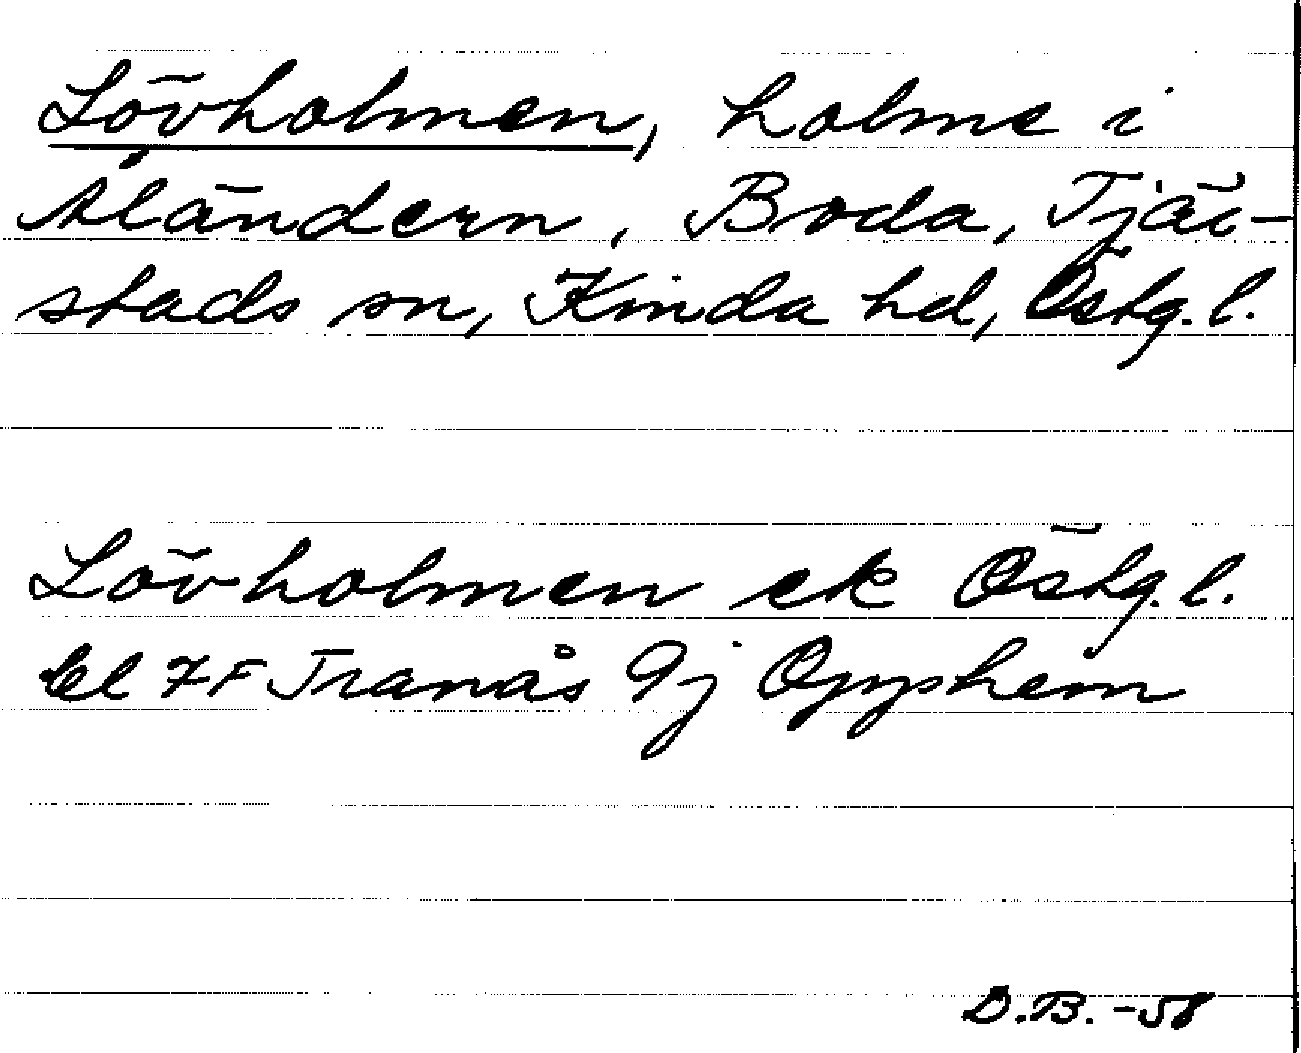 Lövholmen, holme i
Åländern, Boda, Tjär-
stads sn, Kinda hd, Östg. l.
Lövholmen ek Östg. l.
bl 7F Tranås 9j Opphem
D.B. -58